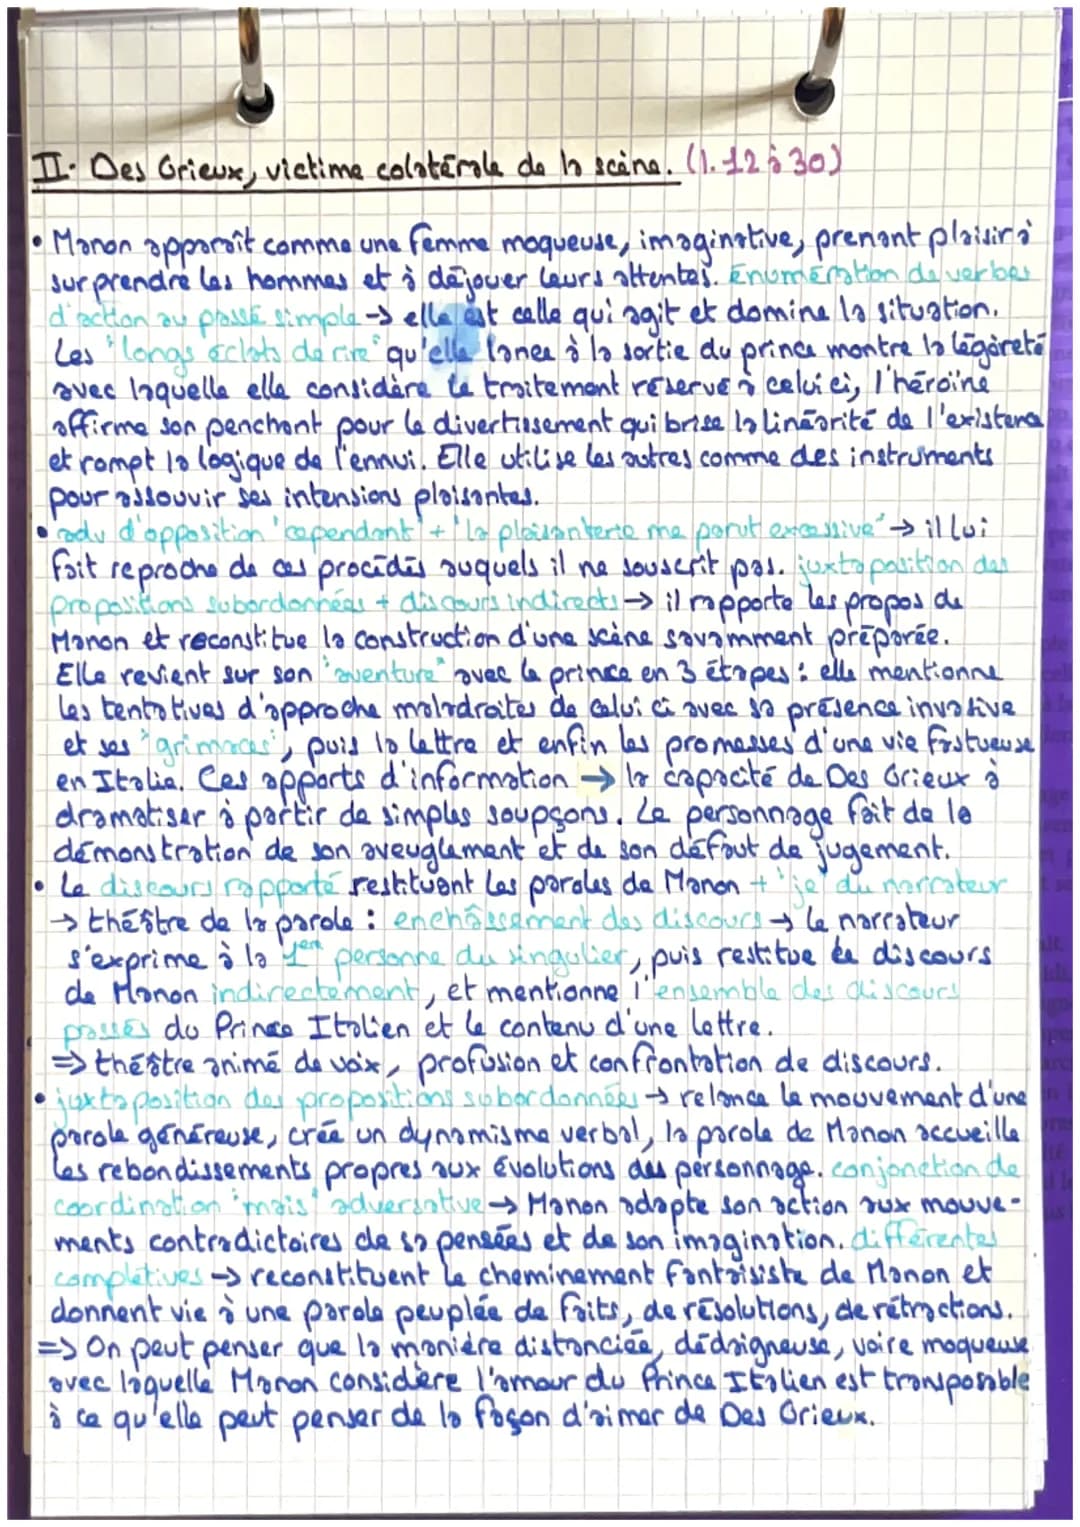 II. Des Grieux, victime colatérale de la scène. (l. 12 à 30)
• Manon apparaît comme une femme moqueuse, imaginative, prenant plaisir à
surprendre les hommes et à déjouer leurs attentes. énumération de verbes
d'action au passé simple → elle est celle qui agit et domine la situation.
Les "longs éclats de rire" qu'elle lance à la sortie du prince montre la légèreté
avec laquelle elle considère le traitement réservé à celui ci, l'héroïne
affirme son penchant pour le divertissement qui brise la linéarité de l'existence
et rompt la logique de l'ennui. Elle utilise les autres comme des instruments
pour assouvir ses intensions plaisantes.
• adv d'opposition "cependant" + "la plaisanterie me parut excessive" → il lui
fait reproche de ces procédés auquels il ne souscrit pas. juxtaposition des
propositions subordonnées + discours indirects → il rapporte les propos de
Manon et reconstitue la construction d'une scène savamment préparée.
Elle revient sur son "aventure" avec le prince en 3 étapes : elle mentionne
les tentatives d'approche maladroites de celui ci avec sa présence invasive
et ses "grimaces", puis la lettre et enfin les promesses d'une vie fastueuse
en Italie. Ces apports d'information → la capacité de Des Grieux à
dramatiser à partir de simples soupçons. Le personnage fait de la
démonstration de son aveuglement et de son défaut de jugement.
• Le discours rapporté restituant les paroles de Manon + "je" du narrateur
→ théâtre de la parole : enchâssement des discours → le narrateur
s'exprime à la 1ère personne du singulier, puis restitue le discours
de Manon indirectement, et mentionne l'ensemble des discours
passés du Prince Italien et le contenu d'une lettre.
=> théâtre animé de voix, profusion et confrontation de discours.
• juxtaposition des propositions subordonnées → relance le mouvement d'une
parole généreuse, crée un dynamisme verbal, la parole de Manon accueille
les rebondissements propres aux évolutions du personnage. conjonction de
coordination "mais" adversative → Manon adapte son action aux mouve-
ments contradictoires de sa pensées et de son imagination. différentes
complétives → reconstituent le cheminement fantaisiste de Manon et
donnent vie à une parole peuplée de faits, de résolutions, de rétractions.
=> On peut penser que la manière distanciée, dédaigneuse, voire moqueuse
avec laquelle Manon considère l'amour du Prince Italien est transposable
à ce qu'elle peut penser de la façon d'aimer de Des Grieux.